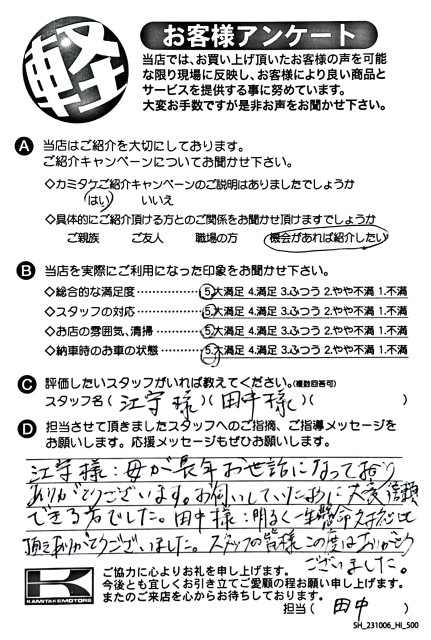 軽
お客様アンケート
当店では、お買い上げ頂いたお客様の声を可能
な限り現場に反映し、お客様により良い商品と
サービスを提供する事に努めています。
大変お手数ですが是非お声をお聞かせ下さい。
A 当店はご紹介を大切にしております。
ご紹介キャンペーンについてお聞かせ下さい。
◇カミタケご紹介キャンペーンのご説明はありましたでしょうか
はい いいえ
◇具体的にご紹介頂ける方とのご関係をお聞かせ頂けますでしょうか
ご親族 ご友人 職場の方 機会があれば紹介したい
B 当店を実際にご利用になった印象をお聞かせ下さい。
◇総合的な満足度 5.大満足 4.満足 3.ふつう 2.やや不満 1.不満
◇スタッフの対応 5.大満足 4.満足 3.ふつう 2.やや不満 1.不満
◇お店の雰囲気、清掃 5.大満足 4.満足 3.ふつう 2.やや不満 1.不満
◇納車時のお車の状態 5.大満足 4.満足 3.ふつう 2.やや不満 1.不満
C 評価したいスタッフがいれば教えてください。(複数回答可)
スタッフ名(江守様)(田中様)( )
D 担当させて頂きましたスタッフへのご指摘、ご指導メッセージを
お願いします。応援メッセージもぜひお願いします。
江守様：母が長年お世話になっており
ありがとうございます。お伺いしていたために大変信頼
できる方でした。田中様：明るく一生懸命ご対応
頂きありがとうございました。スタッフの皆様この度はありがとう
ございました。
KAMITAKEMOTORS
ご協力に心よりお礼を申し上げます。
今後とも宜しくお引き立てご愛顧の程お願い申し上げます。
またのご来店を心からお待ちしております。
担当(田中)
SH_231006_HI_500